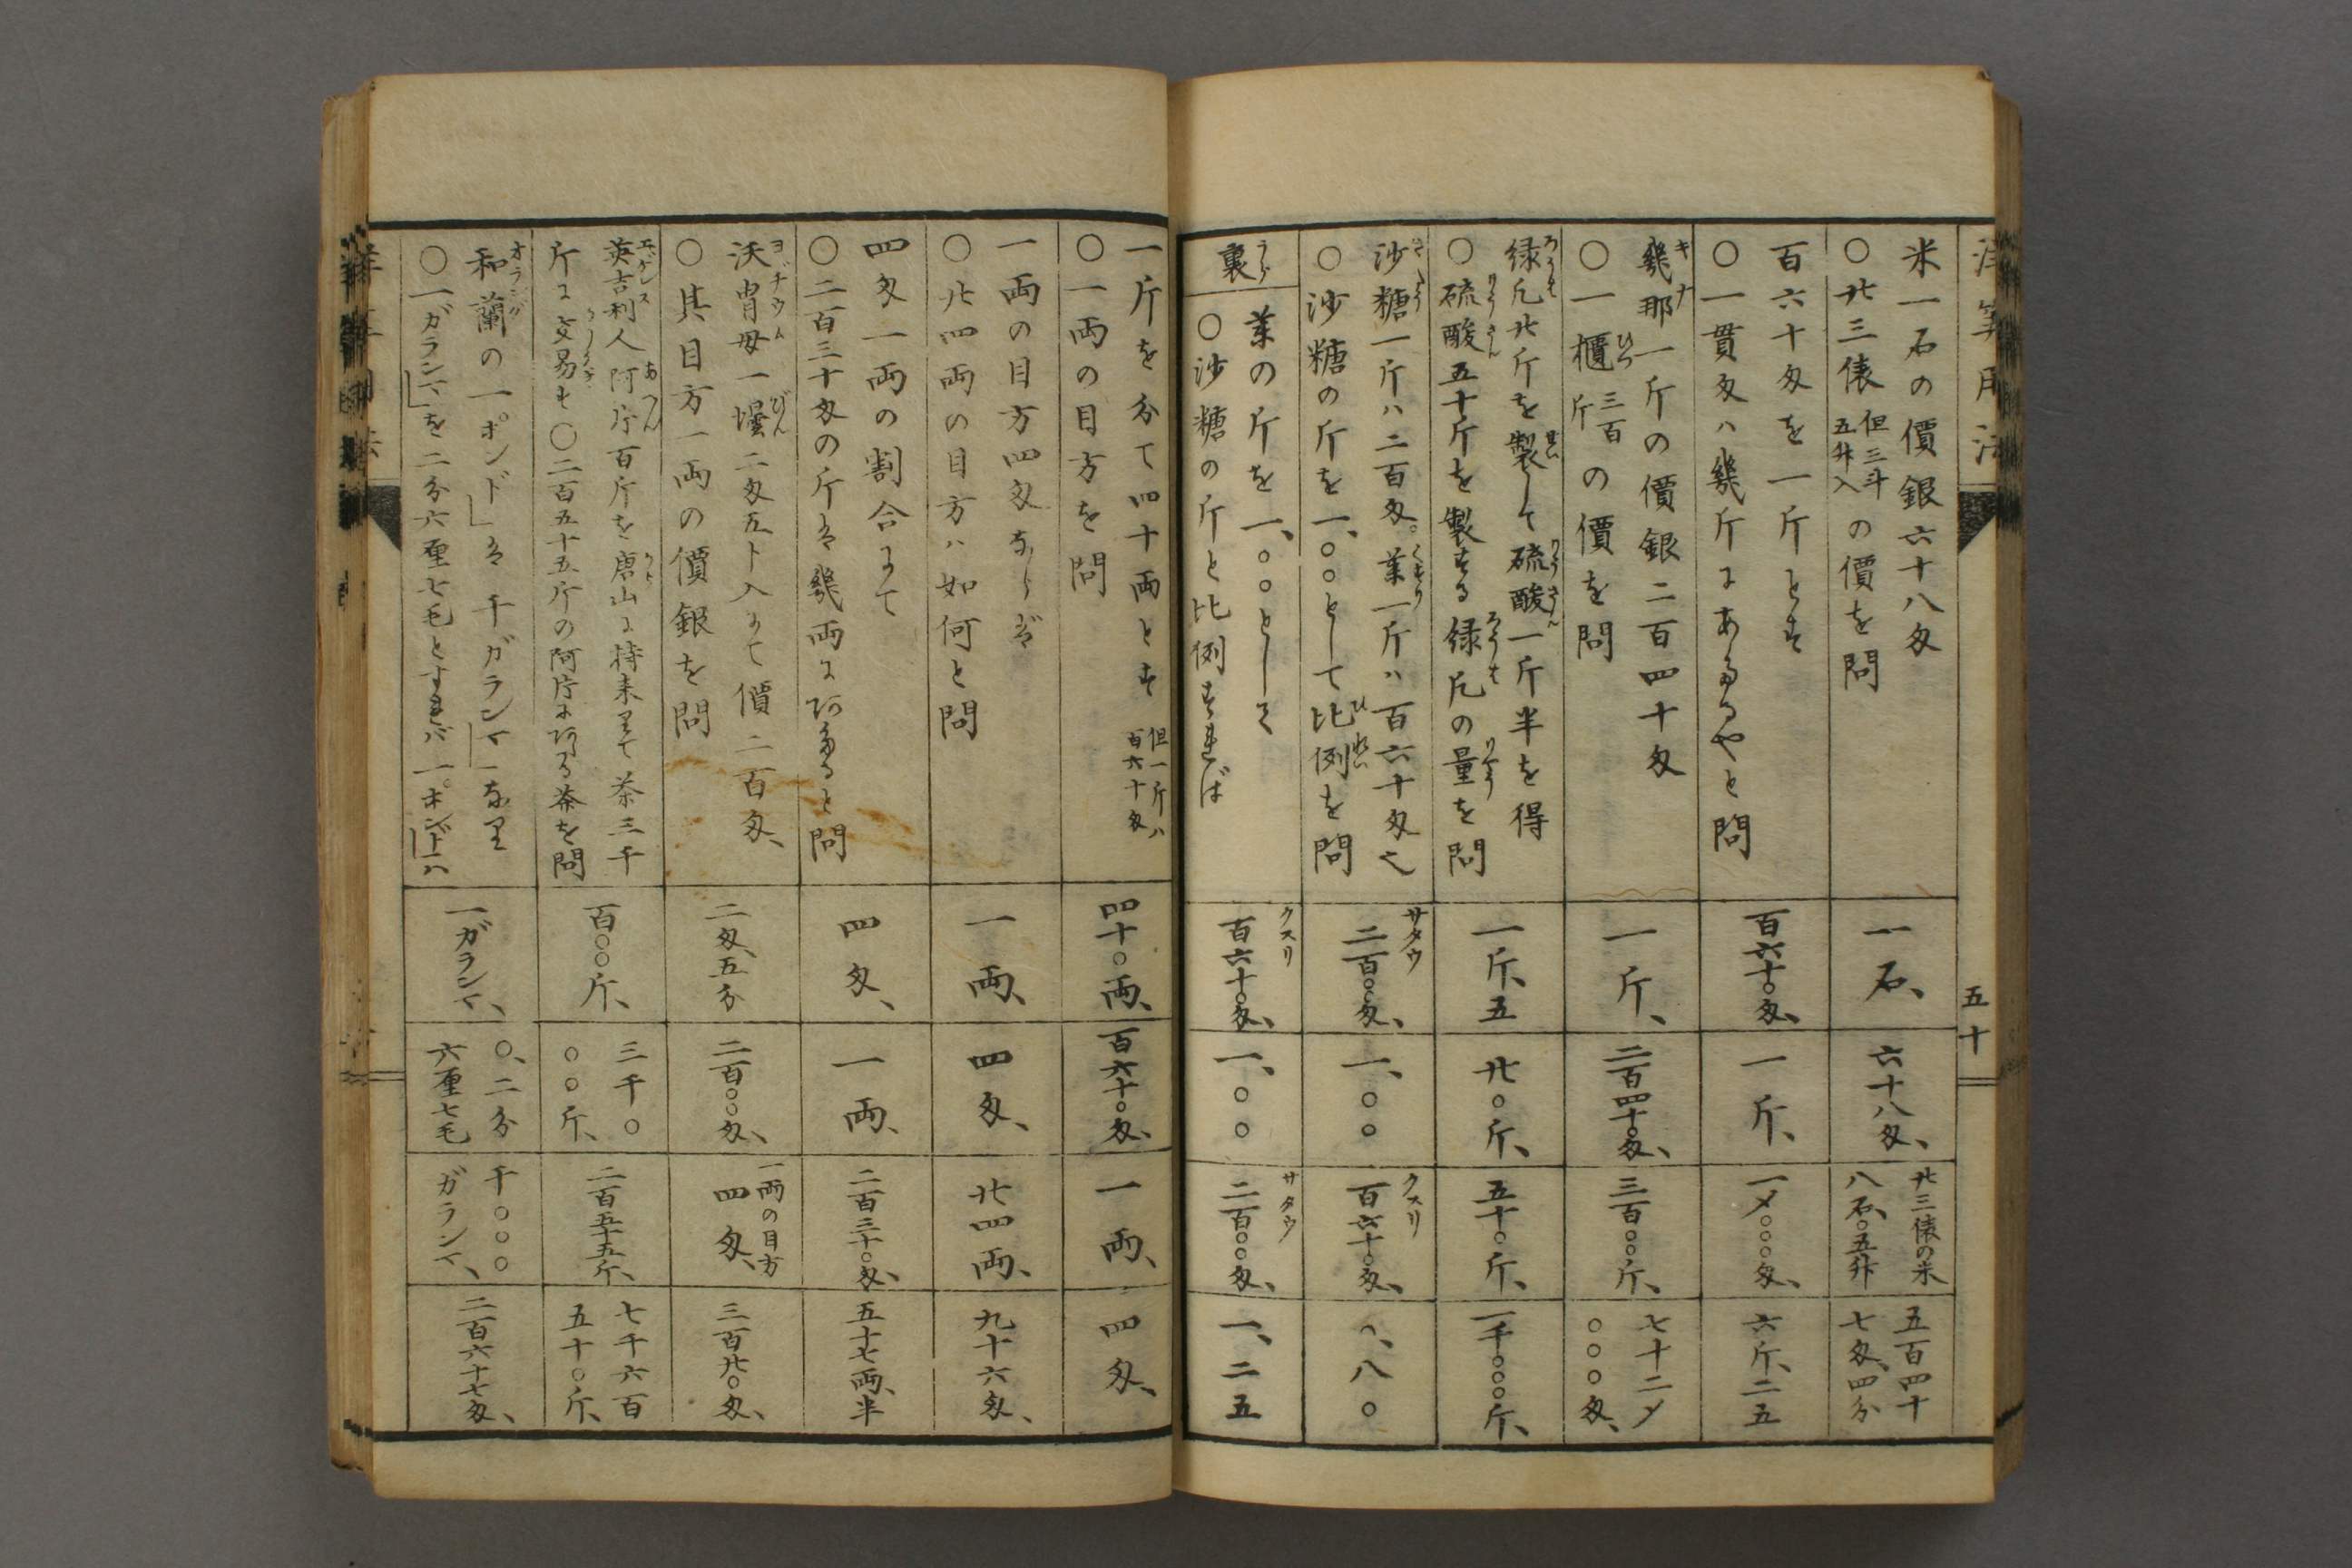 洋算用法
五十
米一石の價銀六十八匁
○廿三俵 但三斗五升入 の價を問
一石、
六十八匁、
廿三俵の米
八石、○五升
五百四十
七匁、四分
百六十匁を一斤とす
○一貫匁ハ幾斤にあたるやと問
百六十○匁、
一斤、
一〆○○○匁、
六斤、二五
幾那一斤の價銀二百四十匁
キナ
○一櫃 三百斤 の價を問
ひつ
一斤、
二百四十○匁、
三百○○斤、
七十二〆
○○○匁、
緑凡廿斤を製して硫酸一斤半を得
ろうは せい りうさん
○硫酸五十斤を製する緑凡の量を問
りうさん ろうは りやう
一斤、五
廿○斤、
五十○斤、
一千○○○斤、
沙糖一斤ハ二百匁。薬一斤ハ百六十匁也
さとう くすり
○沙糖の斤を一、○○として比例を問
ひれい
サタウ
二百○○匁、
一、○○
クスリ
百六十○匁、
○、八○
裏
うら
薬の斤を一、○○として
○沙糖の斤と比例すれば
クスリ
百六十○匁、
一、○○
サタウ
二百○○匁、
一、二五
一斤を分て四十両とす 但一斤ハ百六十匁
○一両の目方を問
四十○両、
百六十○匁、
一両、
四匁、
一両の目方四匁ならば
○廿四両の目方ハ如何と問
一両、
四匁、
廿四両、
九十六匁、
四匁一両の割合にて
○二百三十匁の斤は幾両にあたると問
四匁、
一両、
二百三十○匁、
五十七両、半
沃胄母一壜二匁五卜入にて價二百匁、
ヨヂウム びん
○其目方一両の價銀を問
二匁、五分
二百○○匁、
一両の目方
四匁、
三百廿○匁、
英吉利人阿片百斤を唐山に持来りて茶三千
エゲレス あへん から
斤に交易す○二百五十五斤の阿片にあたる茶を問
百○○斤、
三千○
○○斤、
二百五十五斤、
七千六百
五十○斤、
和蘭の一「ポンド」は千「ガランマ」なり
オランダ
○一「ガランマ」を二分六厘七毛とすれバ一「ポンド」ハ
一ガランマ、
○、二分
六厘七毛
千○○○
ガランマ、
二百六十七匁、